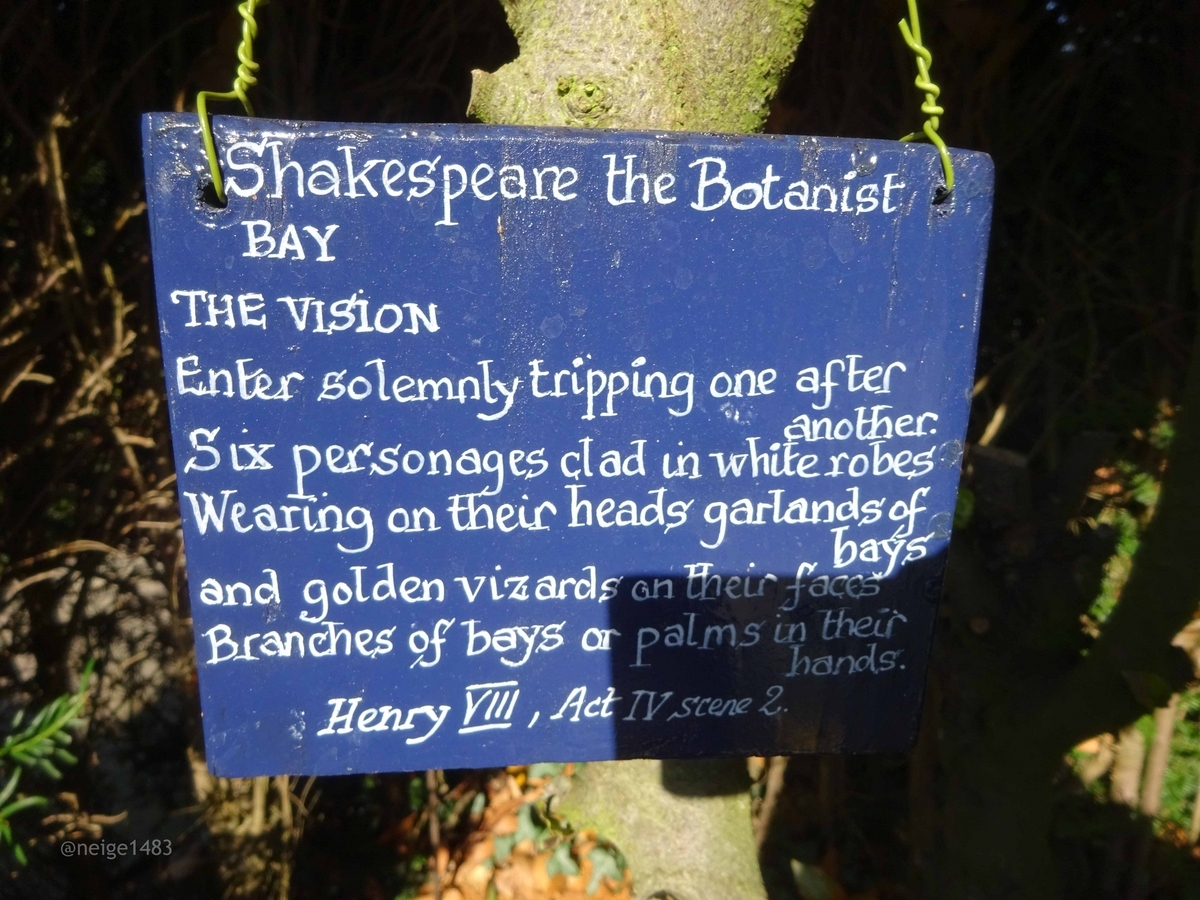 Shakespeare the Botanist
BAY
THE VISION
Enter solemnly tripping one after
another.
Six personages clad in white robes
Wearing on their heads garlands of
bays
and golden vizards on their faces
Branches of bays or palms in their
hands.
Henry VIII, Act IV scene 2.
@neige1483